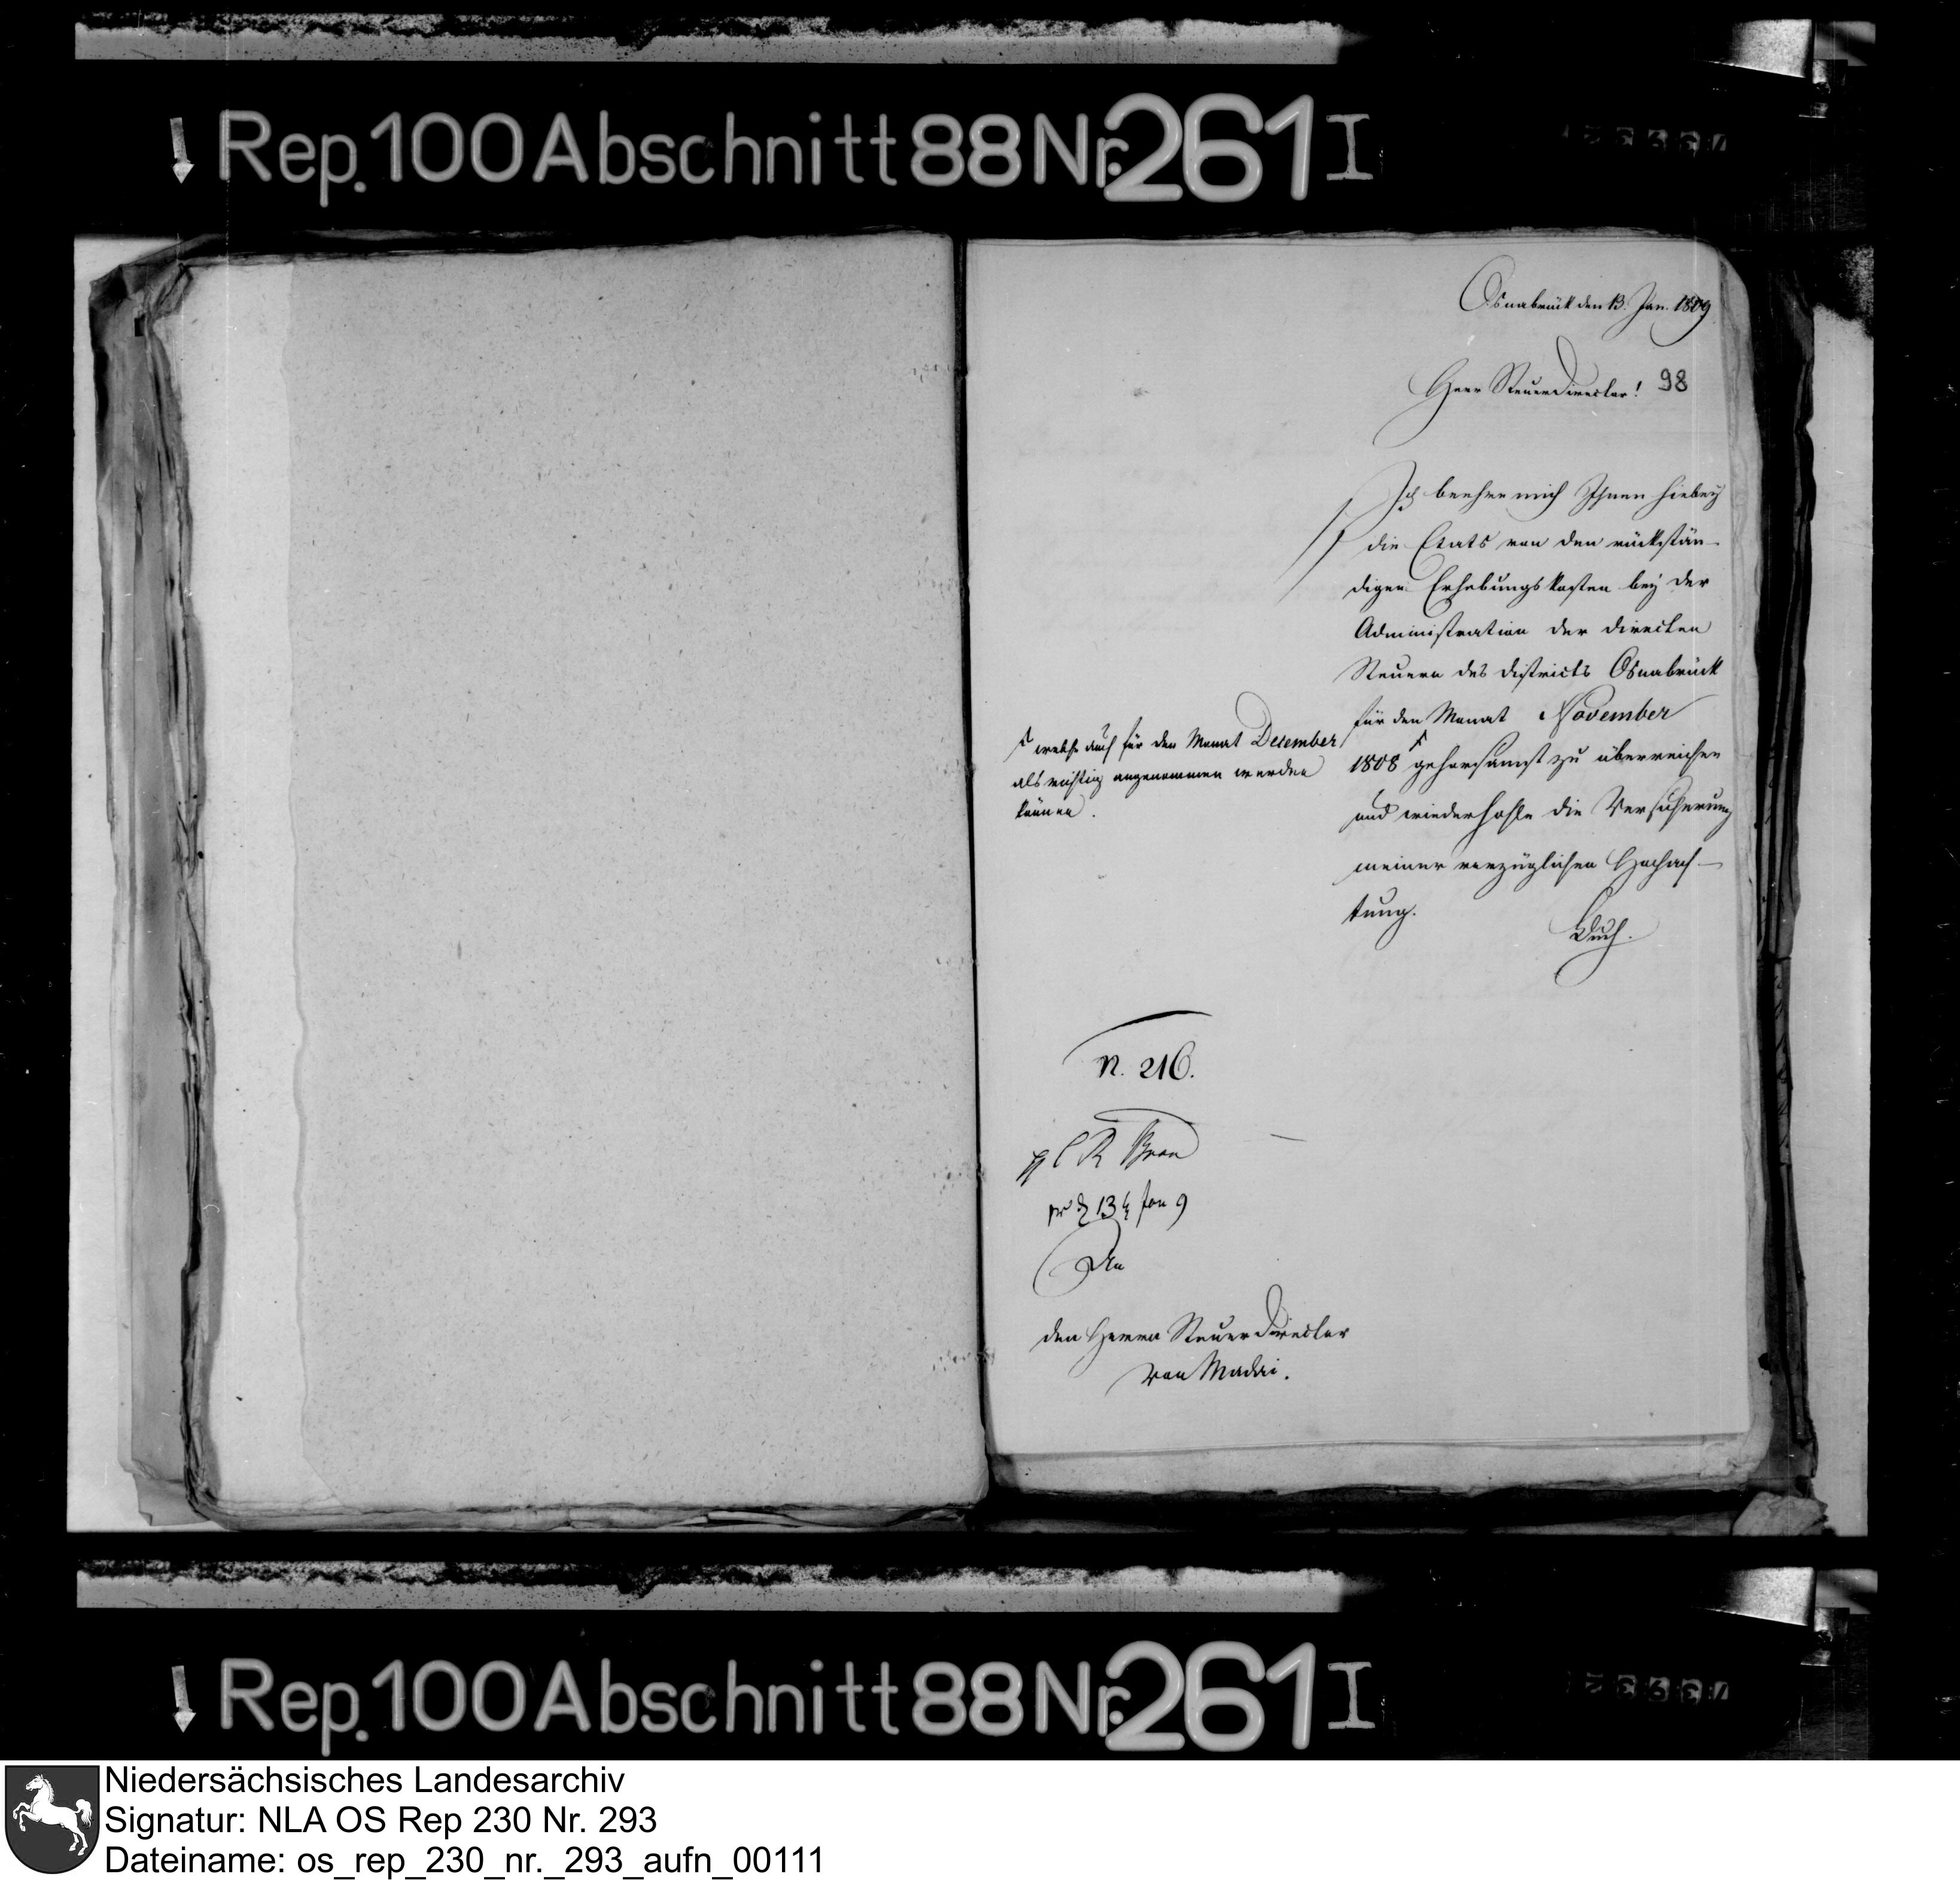 Rep. 100 Abschnitt 88 Nr. 261 I
Osnabrück den 13. Jan. 1809
Herr SteuerDirector!
98
Ich beehre mich Ihnen hiebey
die Etats von den rückstän-
digen Erhebungskosten bey der
Administration der directen
Steuern des Districts Osnabrück
für den Monat November
1808 gehorsamst zu überreichen
und wiederhohle die Versicherung
meiner vorzüglichen Hochach-
tung.
welche auch für den Monat December
als richtig angenommen werden
können.
N. 216.
13 Jan 9
An
den Herrn SteuerDirector
von Madai.
Rep. 100 Abschnitt 88 Nr. 261 I
Niedersächsisches Landesarchiv
Signatur: NLA OS Rep 230 Nr. 293
Dateiname: os_rep_230_nr._293_aufn_00111